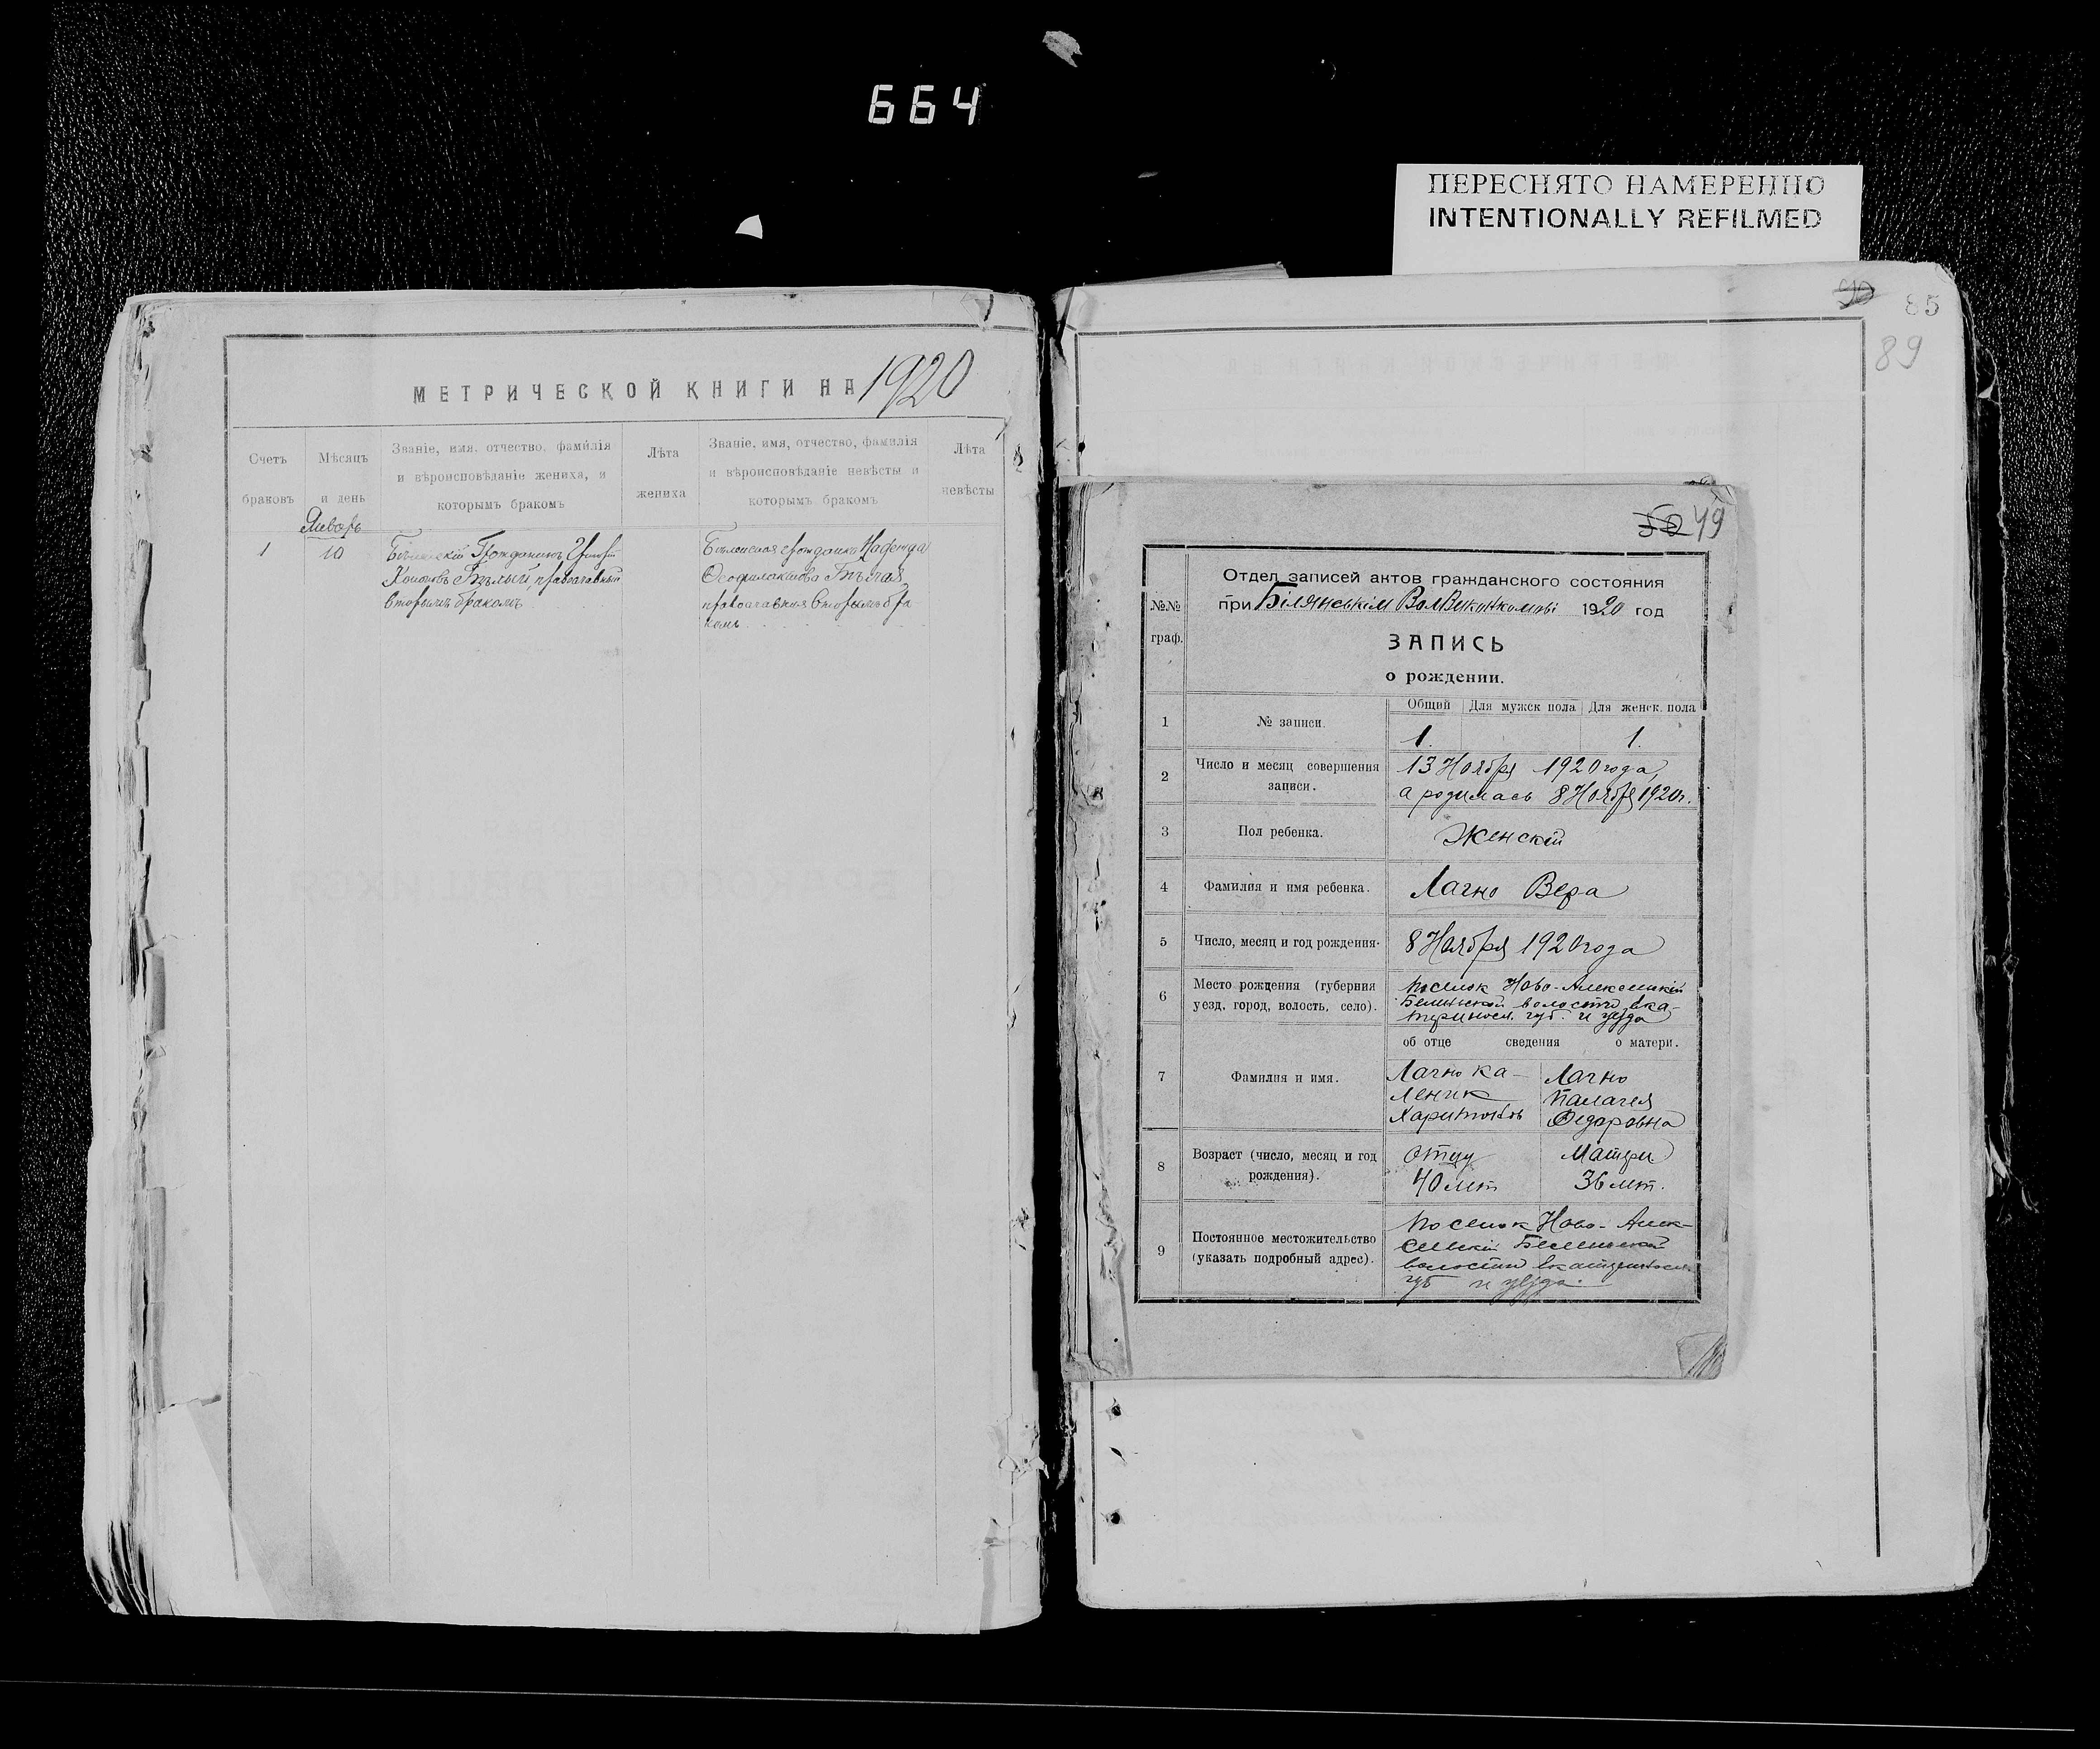 664
ПЕРЕСНЯТО НАМЕРЕННО
INTENTIONALLY REFILMED
МЕТРИЧЕСКОЙ КНИГИ НА 1920
Счетъ
браковъ
Мѣсяцъ
и день
Званіе, имя, отчество, фамилія
и вѣроисповѣданіе жениха, и
которымъ бракомъ
Лѣта
жениха
Званіе, имя, отчество, фамилія
и вѣроисповѣданіе невѣсты и
которымъ бракомъ
Лѣта
невѣсты
Январь
1
10
Гражданинъ
Бѣлый, православный
вторымъ бракомъ
гражданка Надежда
Феофилактова
православная вторымъ бра
комъ
90 85
89
50 49
№№
граф.
Отдел записей актов гражданского состояния
при Білянськім ВолВиконкомові 1920 год
ЗАПИСЬ
о рождении.
1
№ записи.
Общий Для мужск пола Для женск. пола
1. 1.
2
Число и месяц совершения
записи.
13 Ноября 1920 года,
а родилась 8 Ноября 1920 г.
3
Пол ребенка.
Женскій
4
Фамилия и имя ребенка.
Лагно Вера
5
Число, месяц и год рождения.
8 Ноября 1920 года
6
Место рождения (губерния
уезд, город, волость, село).
поселок Ново-Алексеевкій
волости Ека-
териносл. губ. и уезда
об отце сведения о матери.
7
Фамилия и имя.
Лагно Ка-
леник
Харитонов
Лагно
Палагея
Федоровна
8
Возраст (число, месяц и год
рождения).
отцу
40 лет
Матери
36 лет.
9
Постоянное местожительство
(указать подробный адрес).
поселок Ново-Алек-
волости Екатеринос.
губ и уезда.